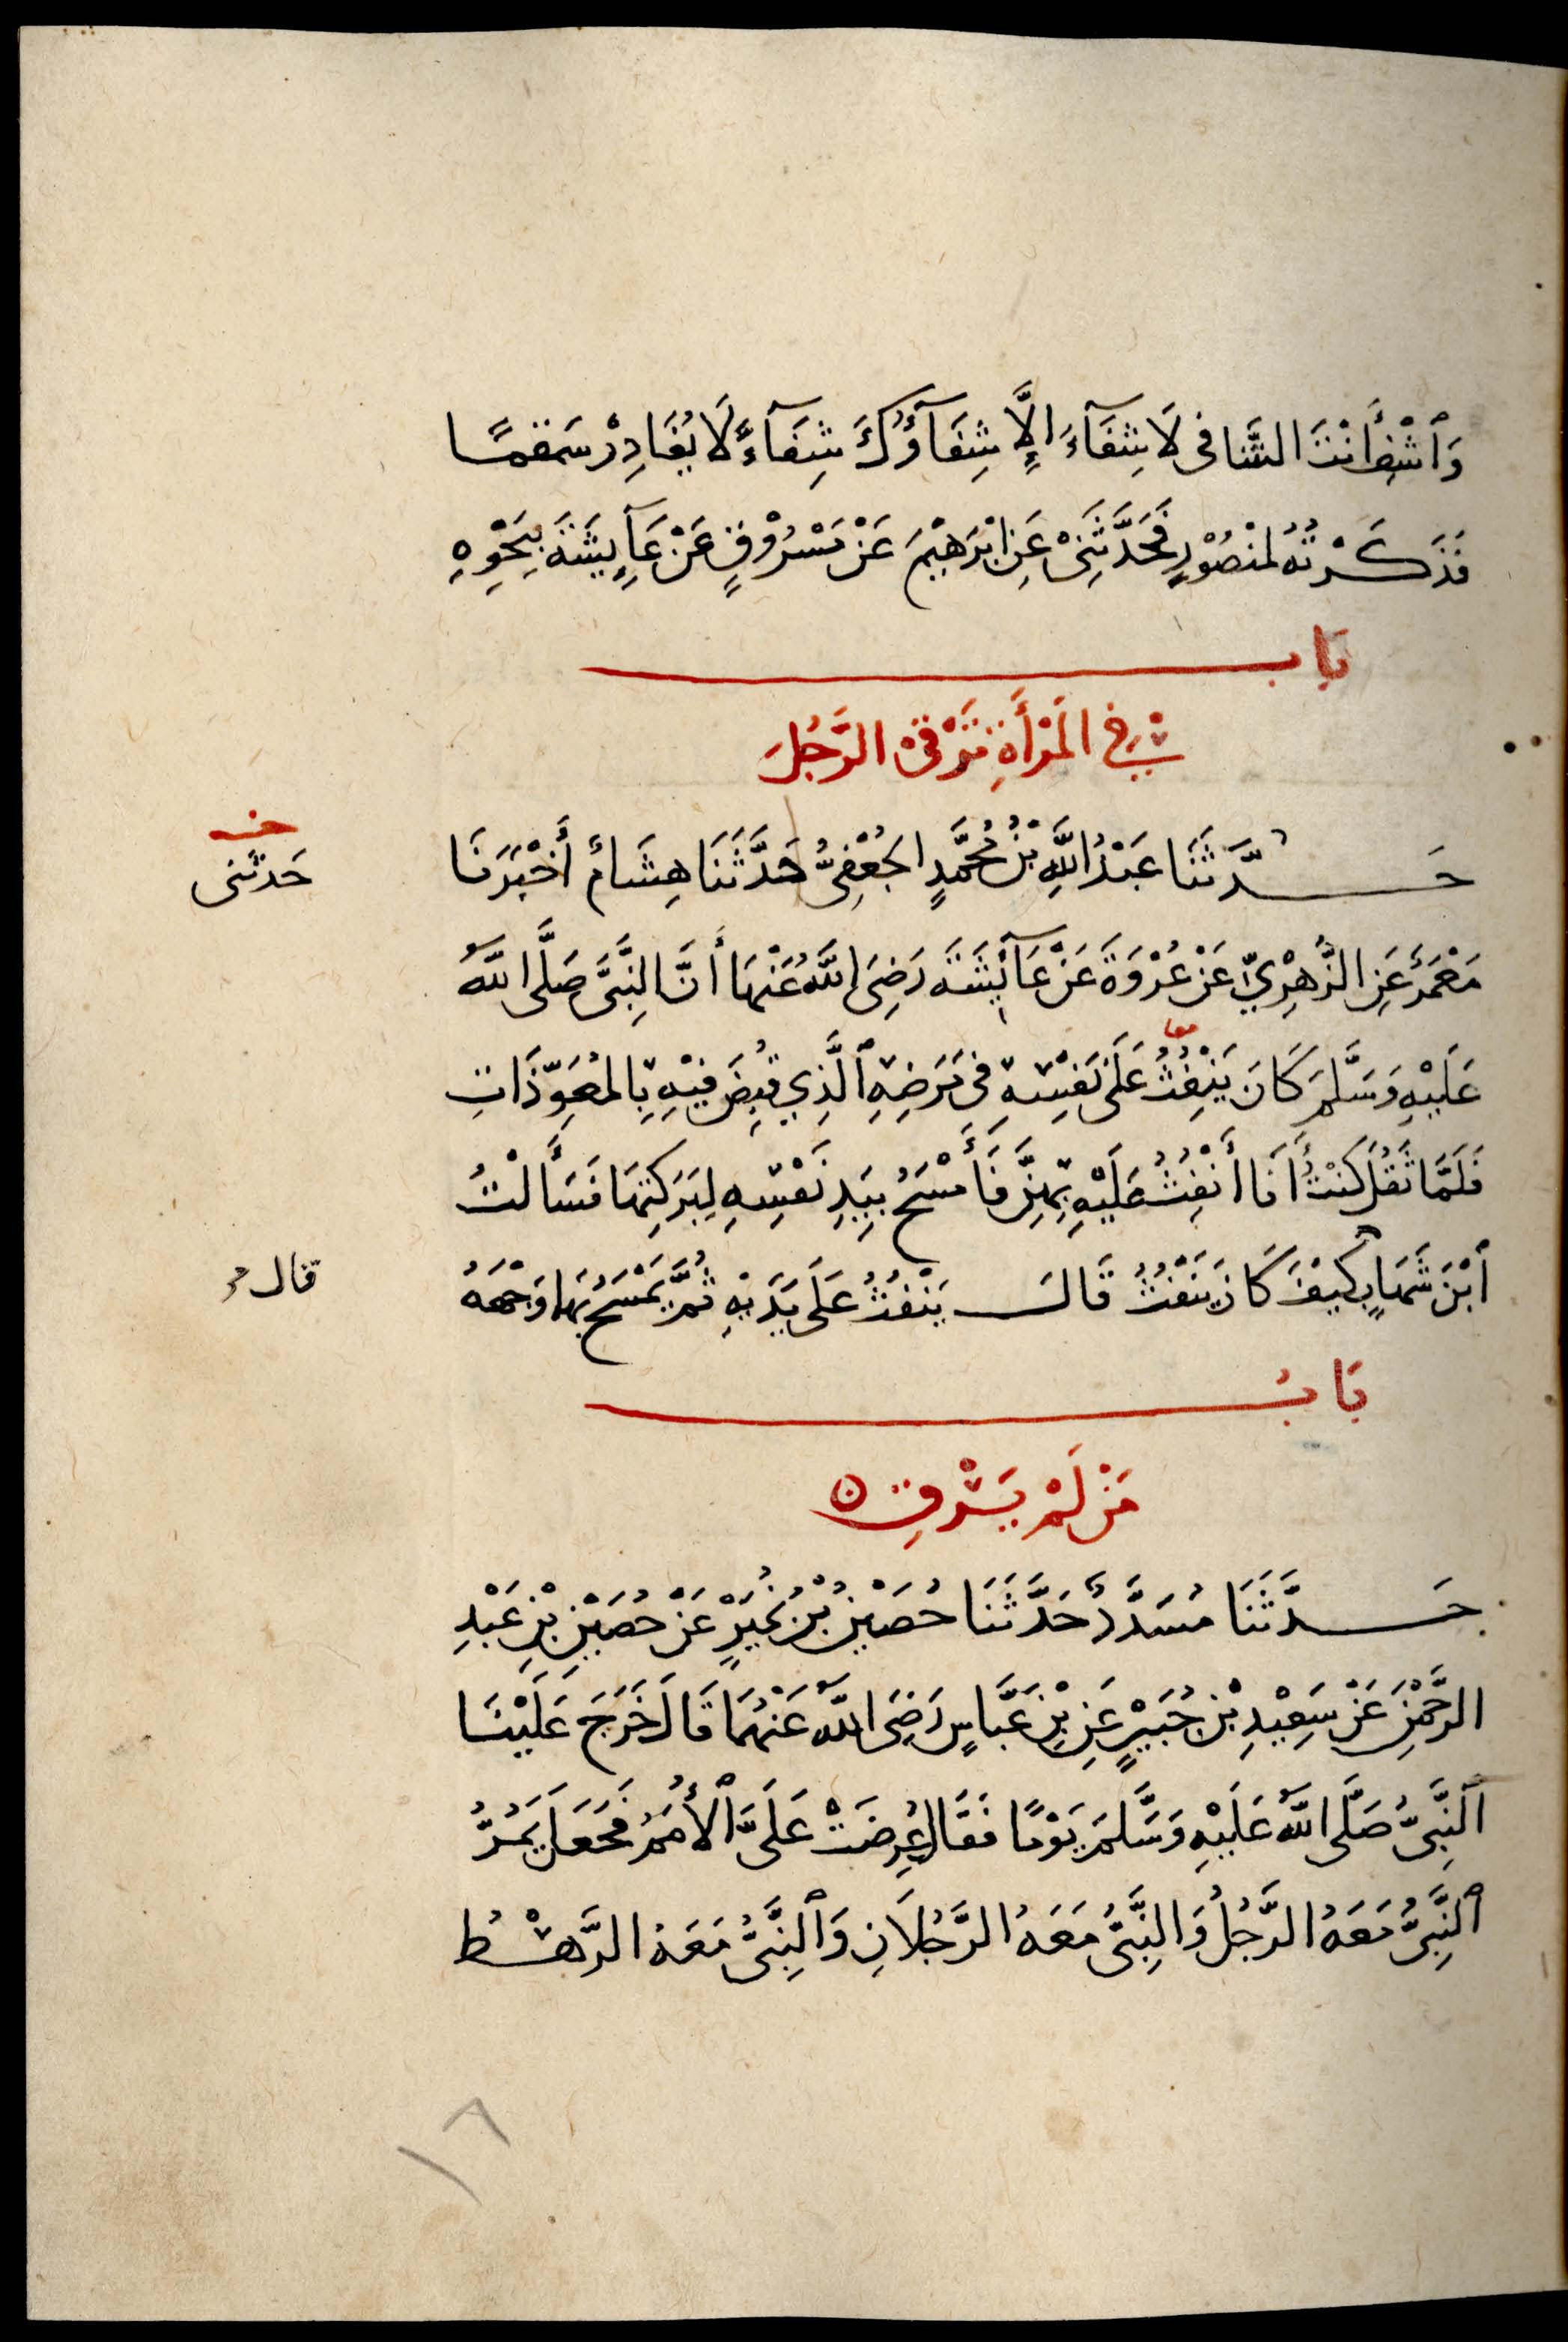 وَٱشْفِ أَنْتَ الشَّافى لَا شِفَآءَ اِلَّا شِفَآؤُكَ شِفَآءً لَا يُغَادِرْ سَقمًا
فَذَكَرْتُهُ لمنْصُوْرٍ فَحَدَّثَنِىْ عَنِ ابْرَهِيْمَ عَنْ مَسْرُوْقٍ عَنْ عَآيِشَةَ بِنَحْوِهِ
بَاب
فِى الْمَرْأَةِ تَرْقِىْ الرَّجُلَ
حَدَّثَنَا عَبْدُ اللَّهِ بْنُ مُحَمَّدٍ الجُعْفِىُّ حَدَّثَنَا هِشَامٌ أَخْبَرَنَا
حَدثنى
مَعْمَرٌ عَنِ الزُّهْرِيِّ عَنْ عُرْوَةَ عَنْ عَآئِشَةَ رَضِىَ اللَّهُ عَنْهَا أَنَّ النَّبِىَّ صَلَّى اللَّهُ
عَلَيْهِ وَسَلَّمَ كَانَ يَنْفِثُ عَلَى نَفْسِهِ فِى مَرَضِهِ ٱلَّذِي قُبِضَ فِيْهِ بِالمُعَوِّذَاتِ
معا
فَلَمَّا ثَقُلَ كُنْتُ أَنَا أَنْفِثُ عَلَيْهِ بِهِنَّ فَأَمْسَحُ بِيَدِ نَفْسِهِ لِبَرَكَتِهَا فَسَأَلْتُ
ٱبْنَ شَهَابٍ كَيْفَ كَانَ يَنْفُثُ قَالَ يَنْفُثُ عَلَى يَدَيْهِ ثُمَّ يَمْسَحُ بِهَا وَجْهَهُ
قال
بَابُ
مَنْ لَمْ يَرْقِ ه
حَدَّثَنَا مُسَدَّدٌ حَدَّثَنَا حُصَيْنُ بْنُ نُمَيْرٍ عَنْ حُصَيْنِ بْنِ عَبْدِ
الرَّحْمٰنِ عَنْ سَعِيْدِ بْنِ جُبَيْرٍ عَنِ بْنِ عَبَّاسٍ رَضِىَ اللَّهُ عَنْهُمَا قَالَ خَرَجَ عَلَيْنَا
ٱلنَّبِىُّ صَلَّى اللَّهُ عَلَيْهِ وَسَلَّمَ يَوْمًا فَقَالَ عُرِضَتْ عَلَىَّ ٱلْأُمَمُ فَجَعَلَ يَمُرُّ
ٱلنَّبِىُّ مَعَهُ الرَّجُلُ وَالنَّبِىُّ مَعَهُ الرَّجُلَانِ وَٱلنَّبِىُّ مَعَهُ الرَّهْطُ
١٨